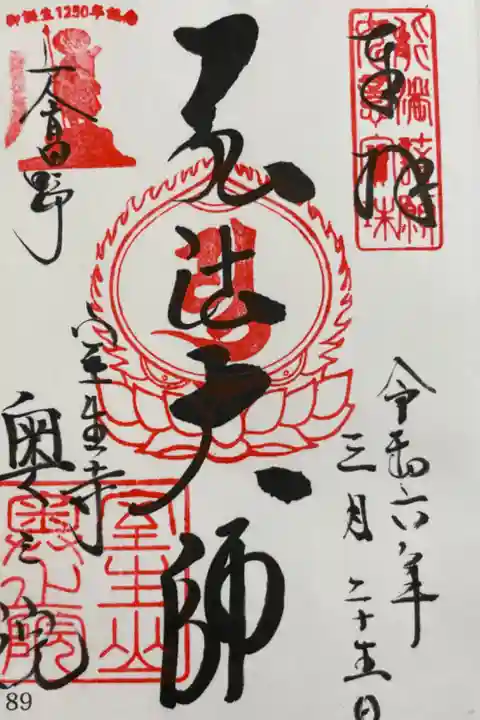 奉拝
令和六年
三月二十五日
弘法大師
御誕生1250年記念
大倉田野
室生寺
奥之院
室生山
奥之院
89